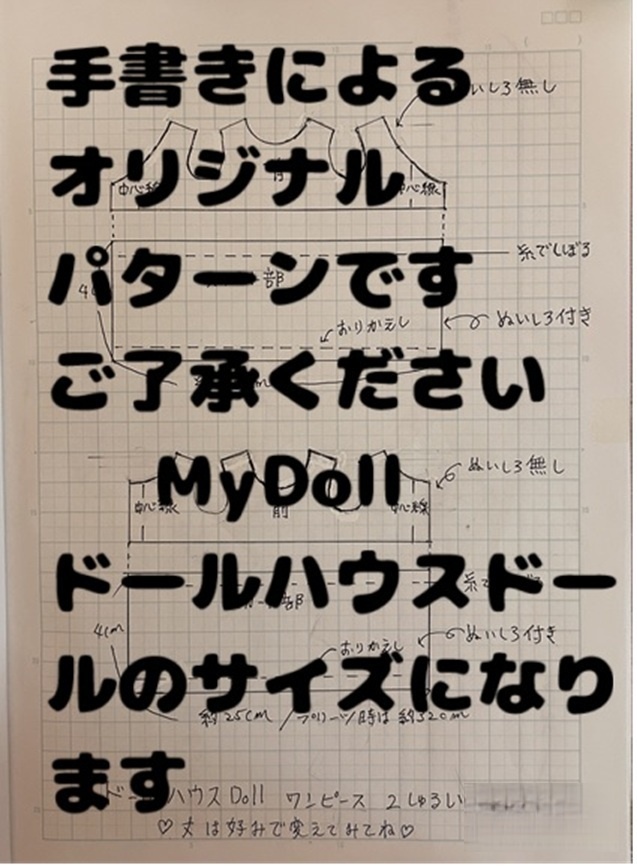 手書きによる
いしろ無し
オリジナル
前
中心線
中心線
パターンです
糸でしぼる
部
おりかえし
ぬいしろ付き
ご了承ください
MyDoll
ぬいしろ無し
中心線
前
中心線
ドールハウスドー
部
4cm
おりかえし
ぬいしろ付き
ルのサイズになり
約25cm / プリーツ時は約320m
ます
ドールハウスDoll ワンピース 2しゅるい
♡丈は好みで変えてみてね♡